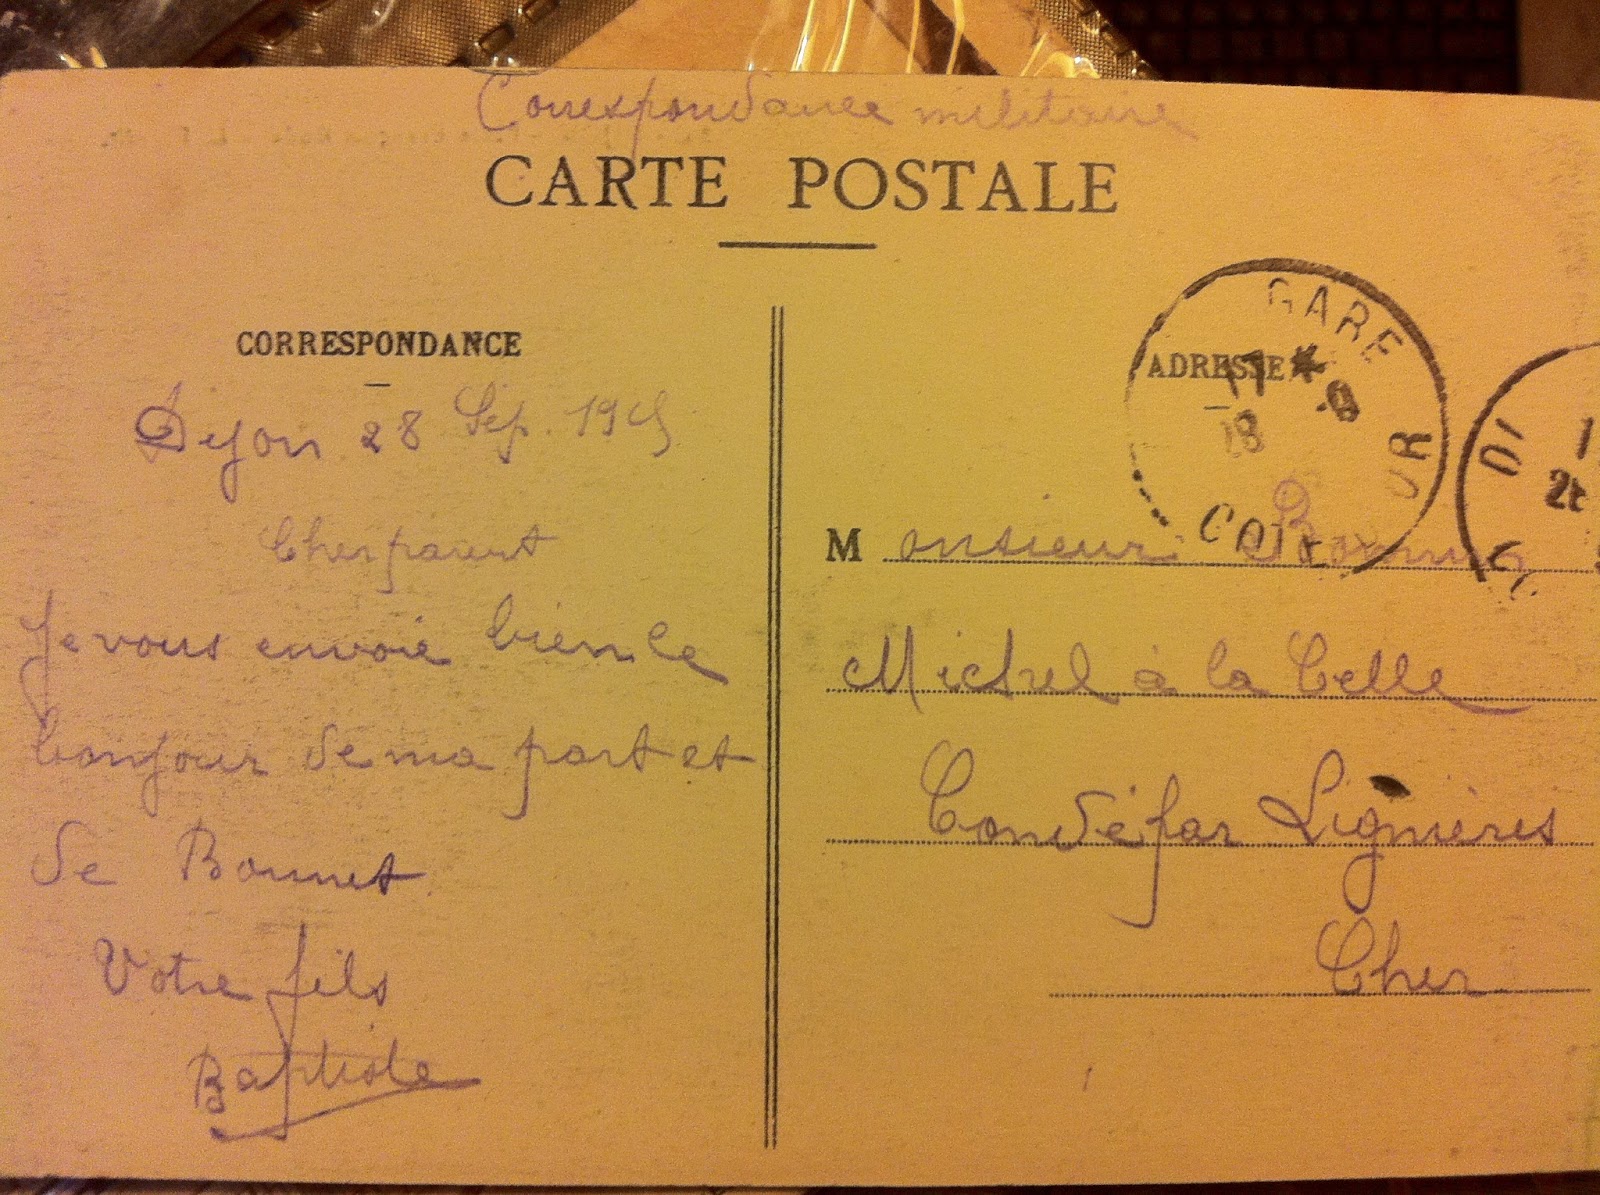 Correspondance militaire
CARTE POSTALE
CORRESPONDANCE
Dijon 28 Sep. 1915
Cher parent
Je vous envoie bien le
bonjour de ma part et
de Bonnet
Votre fils
Baptiste
ADRESSE
GARE
17 * 9
M onsieur
Michel à la Celle
Condé par Lignières
Cher